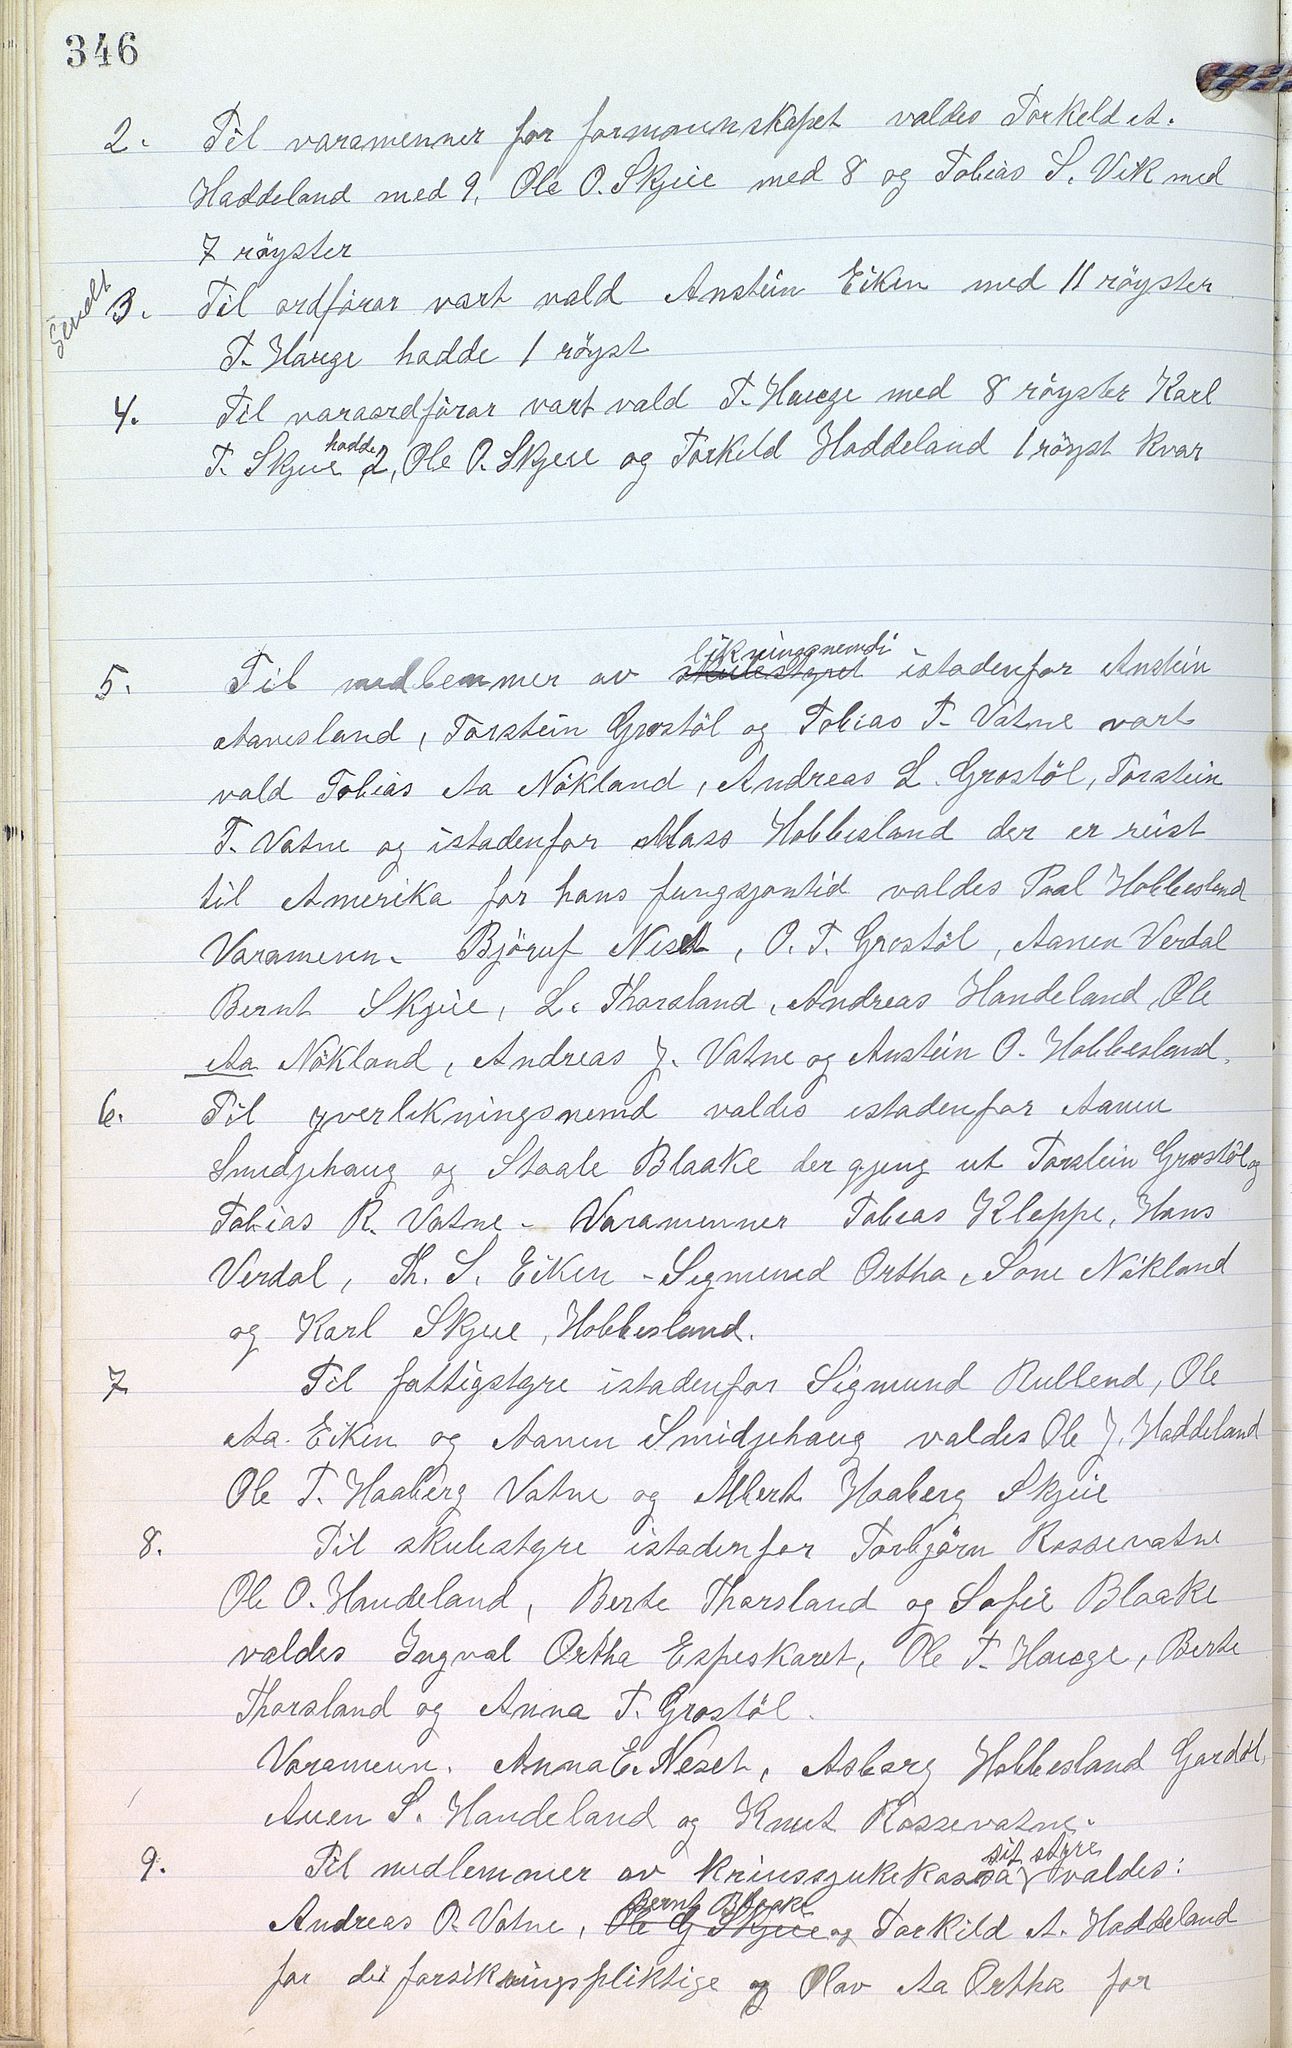 346
2. Til varamenner for formannskapet valdes Torkeld A.
Haddeland med 9, Ole O. Skjeie med 8 og Tobias S. Vik med
7 röyster
Sendt
3. Til ordförar vart vald Anstein Eiken med 11 röyster
T. Hauge hadde 1 röyst
4. Til varaordförar vart vald T. Hauge med 8 röyster Karl
T. Skjeie hadde 2, Ole O. Skjeie og Torkild Haddeland 1 röyst kvar
5. Til medlemmer av skulestyret likningsnemdi istadenfor Anstein
Aavesland, Torstein Grostöl og Tobias T. Vatne vart
vald Tobias Aa Nökland, Andreas L. Grostöl, Torstein
T. Vatne og istadenfor Mass Hobbesland der er reist
til Amerika for hans fungsjontid valdes Paal Hobbesland
Varamenn. Björuf Neset, O. T. Grostöl, Aanen Verdal
Bernt Skjeie, L. Thorsland, Andreas Handeland, Ole
Aa Nökland, Andreas J. Vatne og Anstein O. Hobbesland.
6. Til yverlikningsnemd valdes istadenfor Aanen
Smidjehaug og Staale Blaake der gjeng ut Torstein Grostöl og
Tobias R. Vatne - Varamenner Tobias Kleppe, Hans
Verdal, Th. S. Eiken - Sigmund Ortha, Sone Nökland
og Karl Skjeie, Hobbesland.
7 Til fattigstyre istadenfor Sigmund Rullend, Ole
Aa. Eiken og Aanen Smidjehaug valdes Ole J. Haddeland
Ole T. Haaberg Vatne og Albert Haaberg Skjeie
8. Til skulestyre istadenfor Torbjörn Rossevatne
Ole O. Handeland, Berte Thorsland og Sofie Blaake
valdes Ingval Ortha Espeskaret, Ole T. Hauge, Berte
Thorsland og Anna T. Grostöl.
Varamenn. Anna E. Neset, Asberg Hobbesland Gardöl,
Anen S. Handeland og Knut Rossevatne.
9. Til medlemmer av krinssjukekassa sit styre valdes:
Andreas O. Vatne, Ole G Skjeie Bernt Blaake og Torkild A. Haddeland
for dei forsikringspliktige og Olav Aa Ortha for